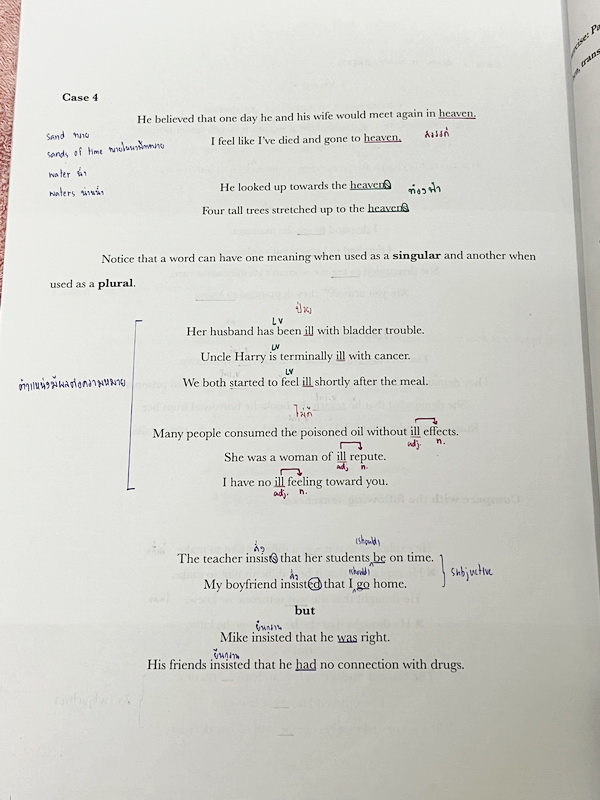 Case 4
He believed that one day he and his wife would meet again in heaven.
sand ทราย
I feel like I've died and gone to heaven. สวรรค์
sands of time ทรายในนาฬิกาทราย
water น้ำ
He looked up towards the heavens
waters น่านน้ำ
ท้องฟ้า
Four tall trees stretched up to the heavens
Notice that a word can have one meaning when used as a singular and another when
used as a plural.
ป่วย
LV
Her husband has been ill with bladder trouble.
LV
Uncle Harry is terminally ill with cancer.
LV
We both started to feel ill shortly after the meal.
ตำแหน่งมีผลต่อความหมาย
ไม่ดี
Many people consumed the poisoned oil without ill effects.
adj. n.
She was a woman of ill repute.
adj. n.
I have no ill feeling toward you.
adj. n.
สั่ง (should)
The teacher insists that her students be on time.
สั่ง (should)
My boyfriend insisted that I go home.
subjuctive
but
ยืนกราน
Mike insisted that he was right.
ยืนกราน
His friends insisted that he had no connection with drugs.